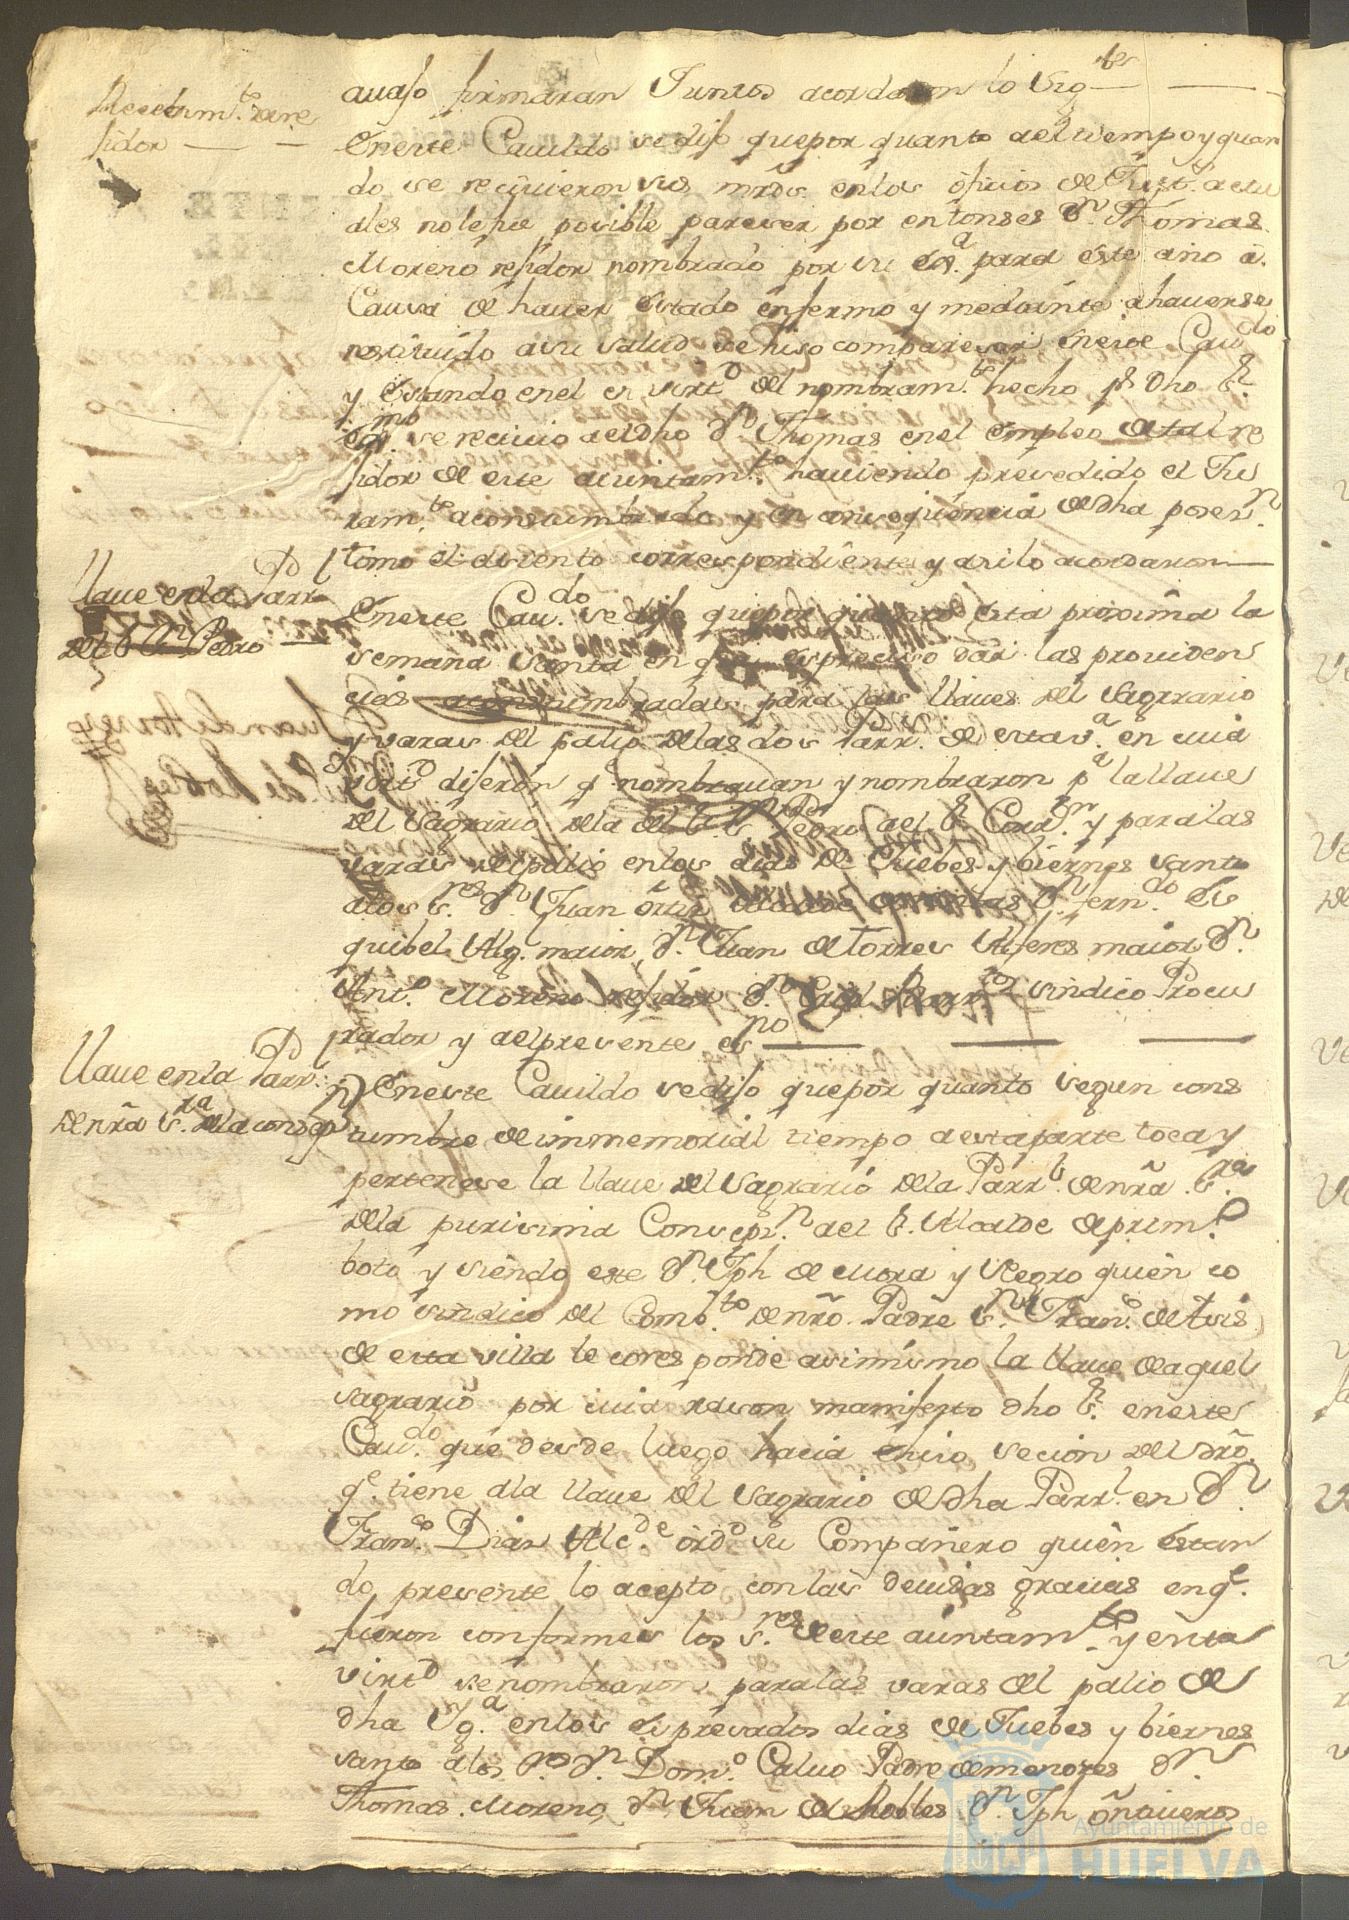 Recebim.to de re
sidor
auajo firmaran Juntos acordaron lo Sigtes
En este Cauildo se dijo que por quanto a el tiempo y quan
do se reciuieron sus mrds en los ofiicios de Just.a actu
ales no le fue posible pareser por entonses D.n Thomas
Moreno residor nombrado por su Ex.a para este año a
Causa de hauer estado enfermo y mediante a hauerse
restituido a su salud se hiso comparecer en este Cau.do
y estando en el en virt.d del nombram.to hecho p.r dho S.r
Ex.mo se reciuio a el dho D.n Thomas en el empleo de tal re
sidor de este aiuntam.to hauiendo presedido el Ju
ram.to acostumbrado y en consequencia de dha poses.n
tomo el asiento correspondiente y asi lo acordaron
Llaue en la Parr.
del S.r S.n Pedro
En este Cau.do se dijo que por quanto esta proxima la
semana Santa en que es presiso dar las prouiden
cias acostumbradas para las llaues del Sagrario
y varas del palio de las dos Parr.s de esta v.a en cuia
virt.d dijeron q.e nombrauan y nombraron p.a la llaue
del Sagrario de la del S.r S.n Pedro a el S.r Corr.or y para las
varas del palio en los dias de Juebes y biernes santo
a los S.res D.n Juan Ortiz Alcalde D.n Fern.do Es
quibel Alg. maior D.n Juan de Torres Alferes maior D.n
Ant.o Moreno residor D.n sindico Procu
rador y a el presente es.no
Llaue en la Parr.
de nrã S.ra de la consep.n
En este Cauildo se dijo que por quanto segun cos
tumbre de immemorial tiempo a esta parte toca y
pertenese la llaue del Sagrario de la Parr.l de nrã S.ra
de la purisima Consep.n a el S.r Alcalde de prim.o
boto y siendo este D.n Jph de Mora y Negro quien co
mo sindico del Comb.to de nrõ Padre S.n Fran.co de Asis
de esta villa le coresponde asimismo la llaue de aquel
sagrario por cuia rason manifesto dho S.r en este
Cau.do que desde luego hacia e hiso sesion del drõ
q.e tiene a la llaue del Sagrario de dha Parr.l en D.n
Fran.co Dias Alc.de ord.o su Compañero quien estan
do presente lo acepto con las deuidas gracias en q.e
fueron conformes los S.res de este aiuntam.to y en su
virt.d se nombraron para las varas del palio de
dha Yg.a en los expresados dias de Juebes y biernes
santo a los S.res D.n Dom.o Caluo Padre de menores D.n
Thomas Moreno, D.n Juan de Robles D.n Jph Ontiueros
Ayuntamiento de
HUELVA